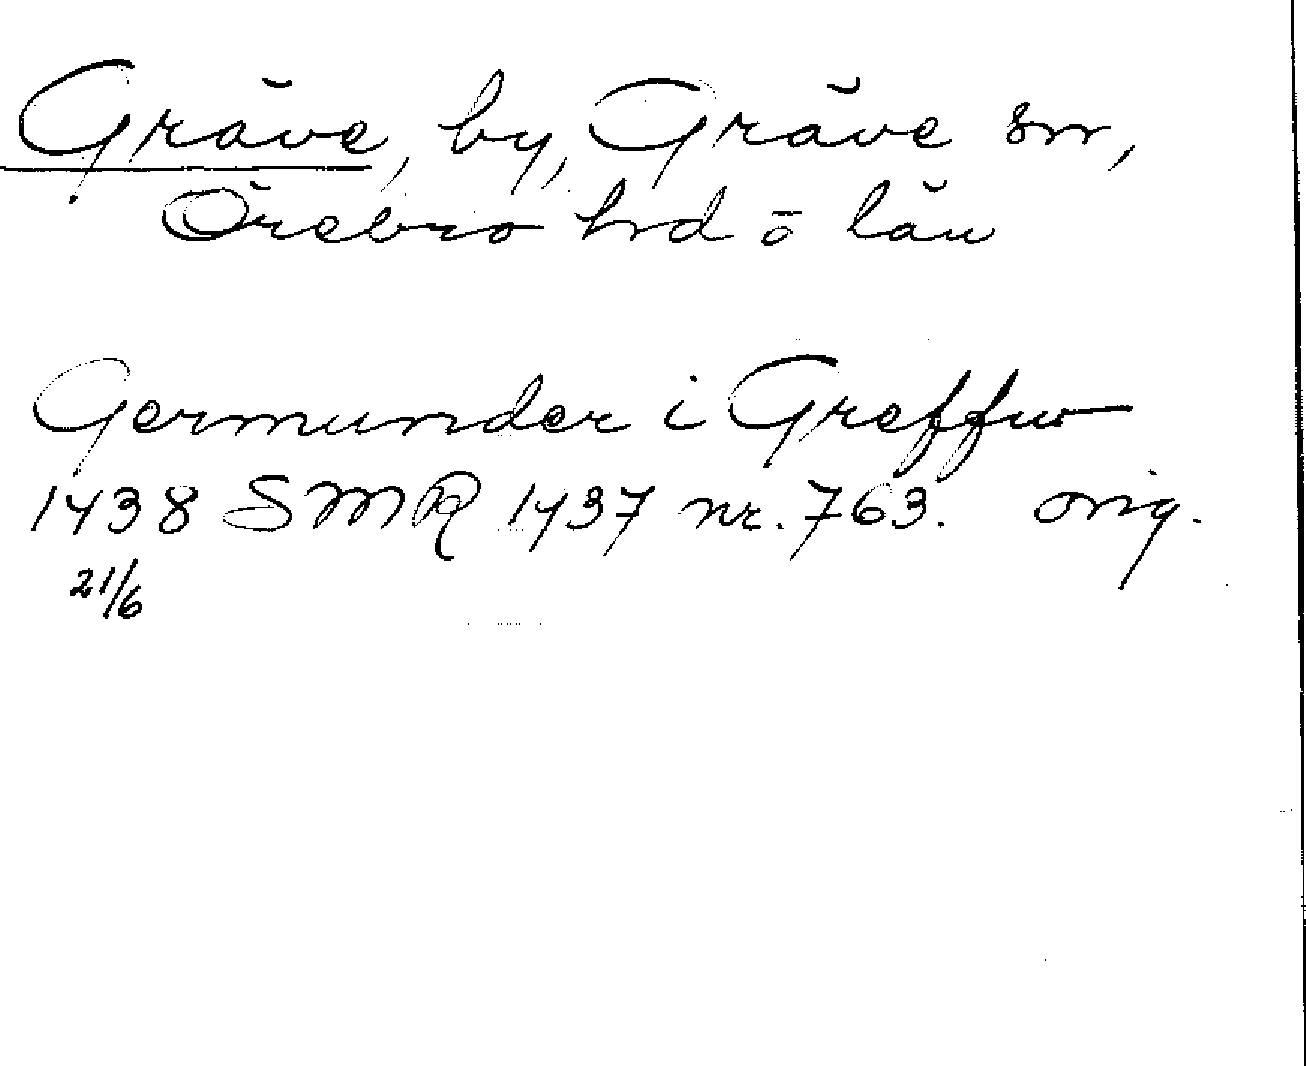 Gräve, by, Gräve sn,
Örebro hd o län
Germunder i Greffw
1438 SMR 1437 nr. 763. orig.
21/6